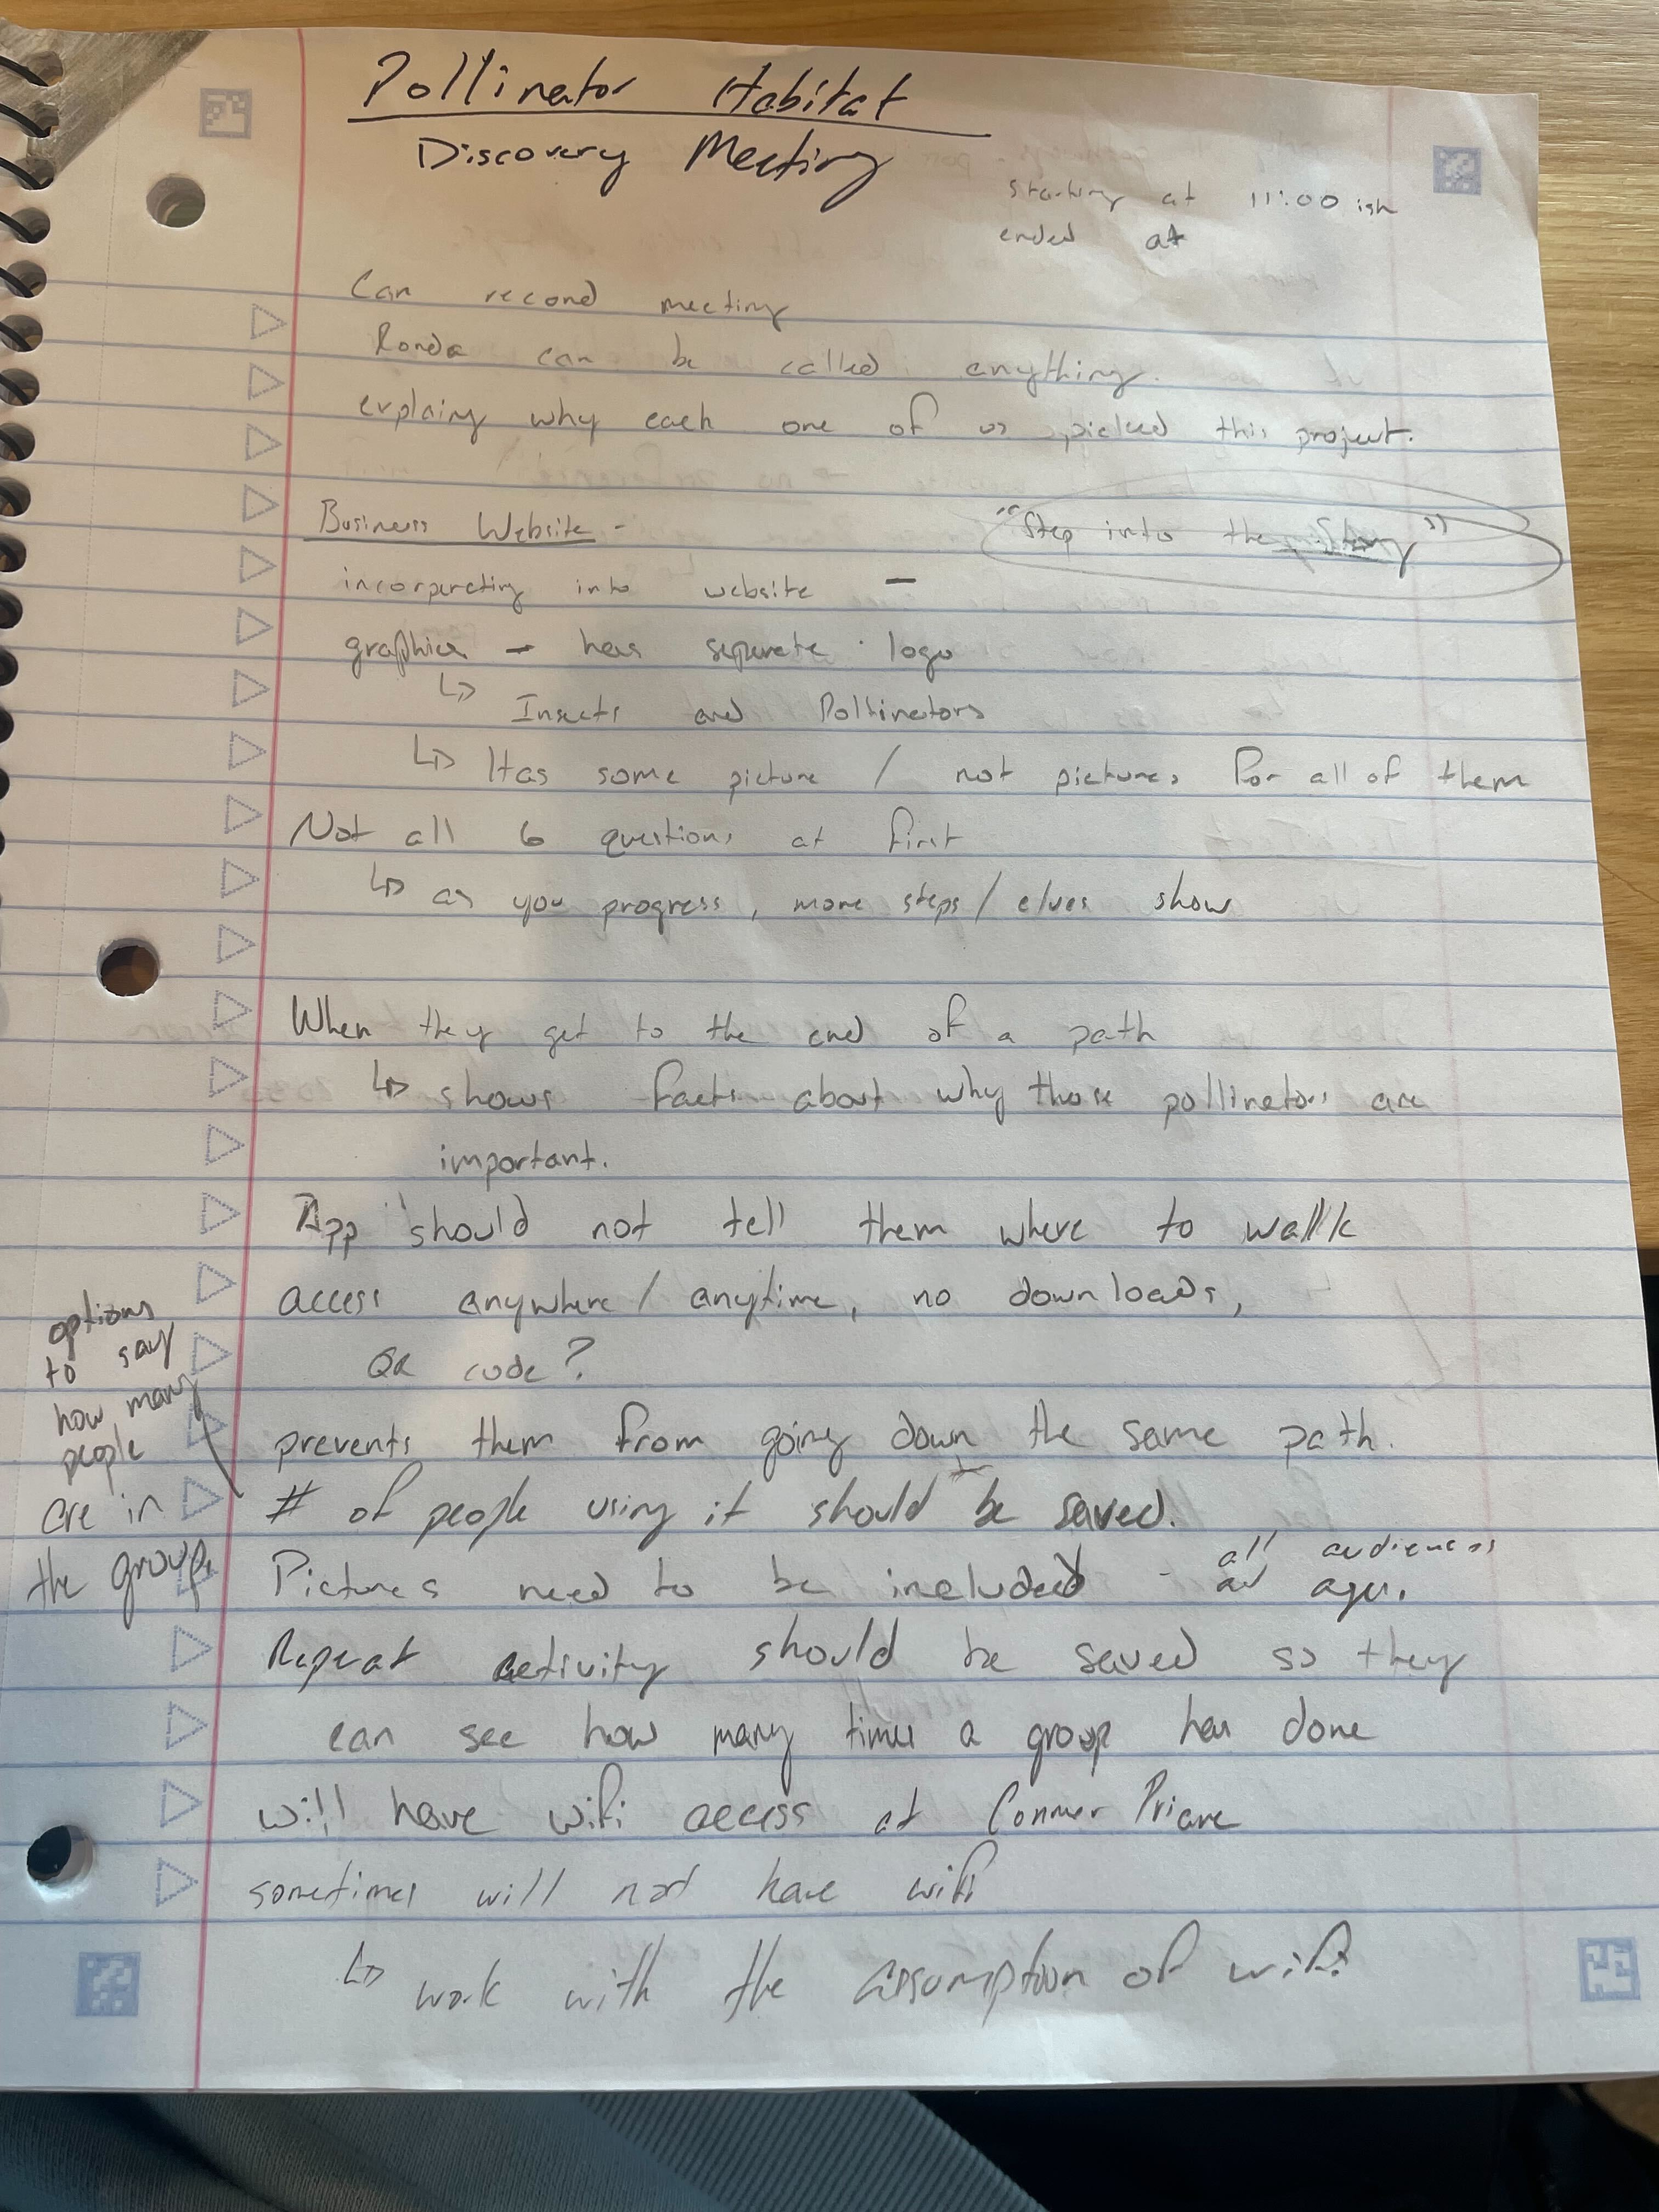 Pollinator Habitat
Discovery Meeting
starting at 11:00 ish
ended at
Can record meeting
Ronda can be called anything.
explaing why each one of us picked this project.
Business Website -
"Step into the Story"
incorperating into website -
graphics - has seperate logo
↳ Insects and Pollinators
↳ Has some picture / not pictures for all of them
Not all 6 questions at first
↳ as you progress, more steps/clues show
When they get to the end of a path
↳ shows facts about why those pollinators are
important.
App should not tell them where to walk
access anywhere/anytime, no downloads,
QR code?
prevents them from going down the same path.
# of people using it should be saved.
options
to say
how many
people
are in
the group.
Pictures need to be included - all audiences
and ages.
Repeat activity should be saved so they
can see how many times a group has done
will have wifi access at Conner Priare
sometimes will not have wifi
↳ work with the assumption of wifi